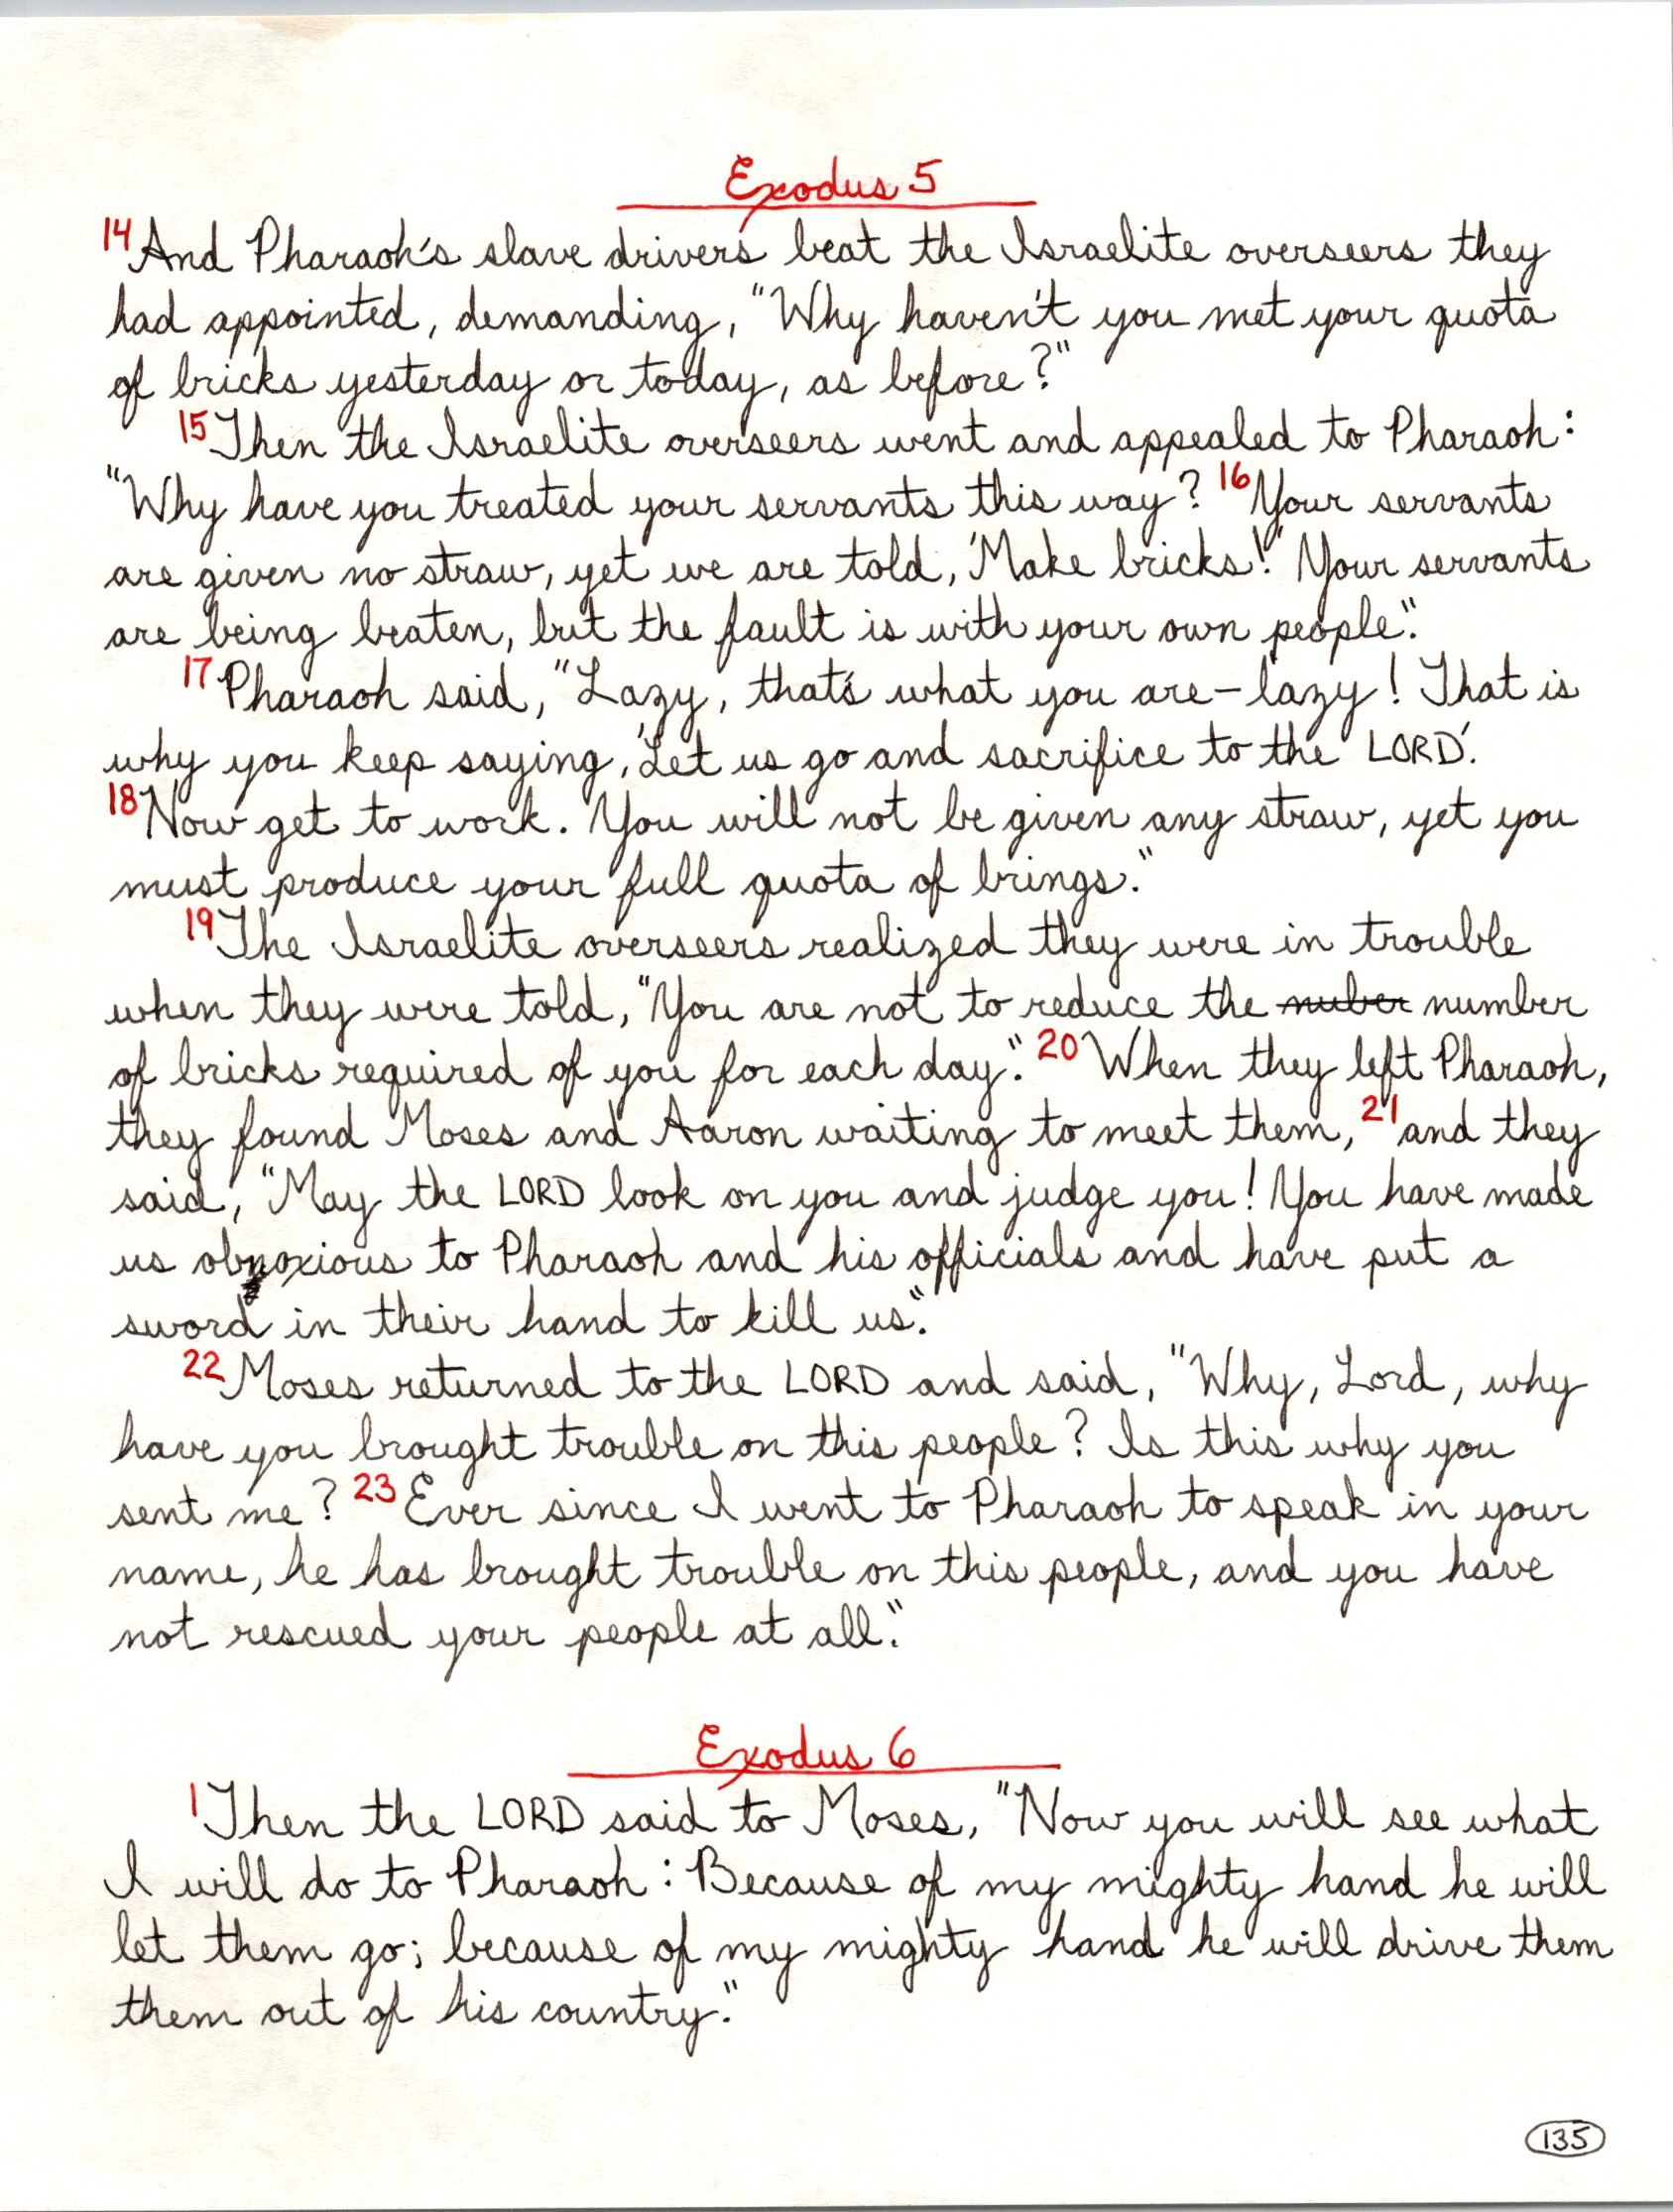 Exodus 5
14 And Pharaoh's slave drivers beat the Israelite overseers they
had appointed, demanding, "Why haven't you met your quota
of bricks yesterday or today, as before?"
15 Then the Israelite overseers went and appealed to Pharaoh:
"Why have you treated your servants this way? 16 Your servants
are given no straw, yet we are told, 'Make bricks!' Your servants
are being beaten, but the fault is with your own people."
17 Pharaoh said, "Lazy, that's what you are—lazy! That is
why you keep saying, 'Let us go and sacrifice to the LORD.'
18 Now get to work. You will not be given any straw, yet you
must produce your full quota of brings."
19 The Israelite overseers realized they were in trouble
when they were told, "You are not to reduce the nuber number
of bricks required of you for each day." 20 When they left Pharaoh,
they found Moses and Aaron waiting to meet them, 21 and they
said, "May the LORD look on you and judge you! You have made
us obnoxious to Pharaoh and his officials and have put a
sword in their hand to kill us."
22 Moses returned to the LORD and said, "Why, Lord, why
have you brought trouble on this people? Is this why you
sent me? 23 Ever since I went to Pharaoh to speak in your
name, he has brought trouble on this people, and you have
not rescued your people at all."
Exodus 6
1 Then the LORD said to Moses, "Now you will see what
I will do to Pharaoh: Because of my mighty hand he will
let them go; because of my mighty hand he will drive them
them out of his country."
135